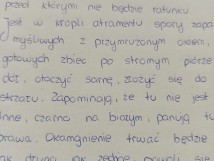 przed którymi nie będzie ratunku.
Jest w kropli atramentu spory zapas
myśliwych z przymrużonym okiem,
gotowych zbiec po stromym piórze
otoczyć sarnę, złożyć się do
strzału. Zapominają, że tu nie jest
inne, czarno na białym, panują tu
prawa. Okamgnienie trwać będzie